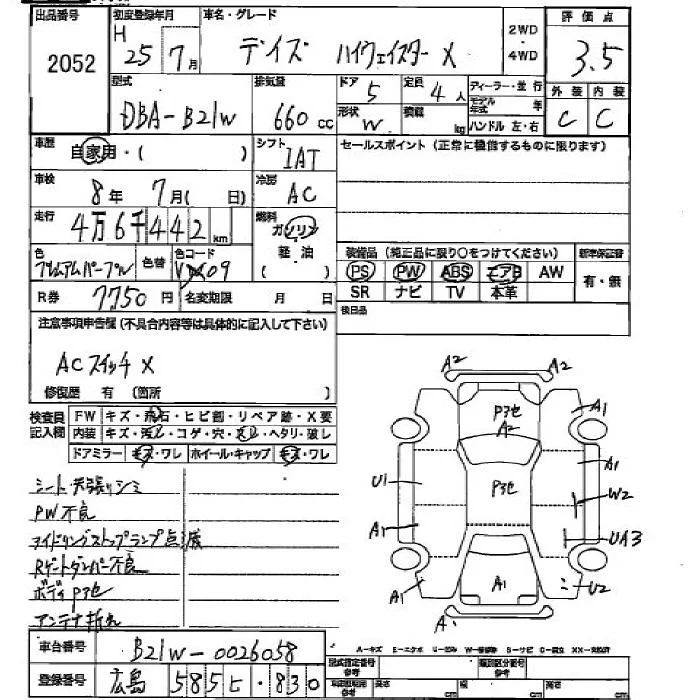 出品番号
2052
初度登録年月
H 25年 7月
車名・グレード
デイズ ハイウェイスター X
2WD
・
4WD
評価点
3.5
型式
DBA-B21W
排気量
660 cc
ドア
5
定員
4人
形状
W
積載
kg
ディーラー・並行
モデル年式 年
ハンドル 左・右
外装
C
内装
C
車歴
自家用・( )
シフト
IAT
セールスポイント (正常に機能するものに限ります)
車検
8年 7月( 日)
冷房
AC
走行
4万6千442km
燃料
ガソリン
軽油
( )
色
プレミアムパープル
色替
色コード
VX09
装備品 (純正品に限り○をつけてください)
PS PW ABS エアB AW
SR ナビ TV 本革
新車保証書
有・無
R券 7750円
名変期限 月 日
後日品
注意事項申告欄(不具合内容等は具体的に記入して下さい)
ACスイッチ X
修復歴 有 (箇所 )
検査員記入欄
FW キズ・飛石・ヒビ割・リペア跡・X要
内装 キズ・汚レ・コゲ・穴・スレ・ヘタリ・破レ
ドアミラー キズ・ワレ
ホイール・キャップ キズ・ワレ
シート 天張りシミ
PW不良
アイドリングストップランプ点滅
Rゲートダンパー不良
ボディP3色
アンテナ折れ
A2 A2
P3色
A2
A1
A1
U1
P3色
W2
A1
UA3
A1
A1
U2
A1
車台番号
B21W-0026058
登録番号
広島 585 ヒ・830
A-キズ E-エクボ U-凹み W-補修跡 S-サビ C-腐食 XX-交換済
型式指定番号
参考
類別区分番号
参考
参考
長さ cm
幅 cm
高さ cm